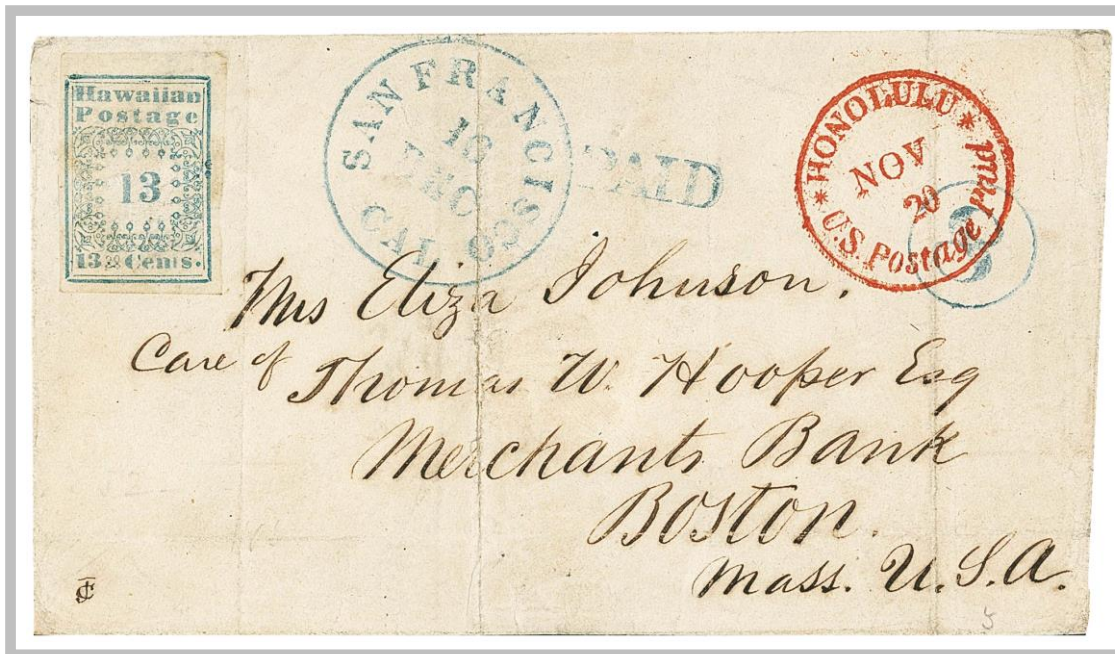 Hawaiian
Postage
13
13 Cents.
SAN FRANCISCO
16
DEC
CAL
PAID
HONOLULU
NOV
20
U.S. Postage Paid
8
Mrs Eliza Johnson.
Care of Thomas W. Hooper Esq
Merchants Bank
Boston.
Mass. U.S.A.